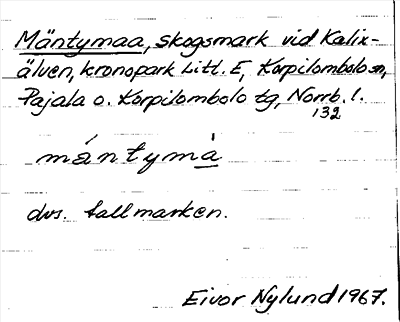 Mäntymaa, skogsmark vid Kalix-
älven, kronopark Litt. E, Korpilombolo sn,
Pajala o. Korpilombolo tg, Norrb. l.
132
mántymà
dvs. tallmarken.
Eivor Nylund 1967.